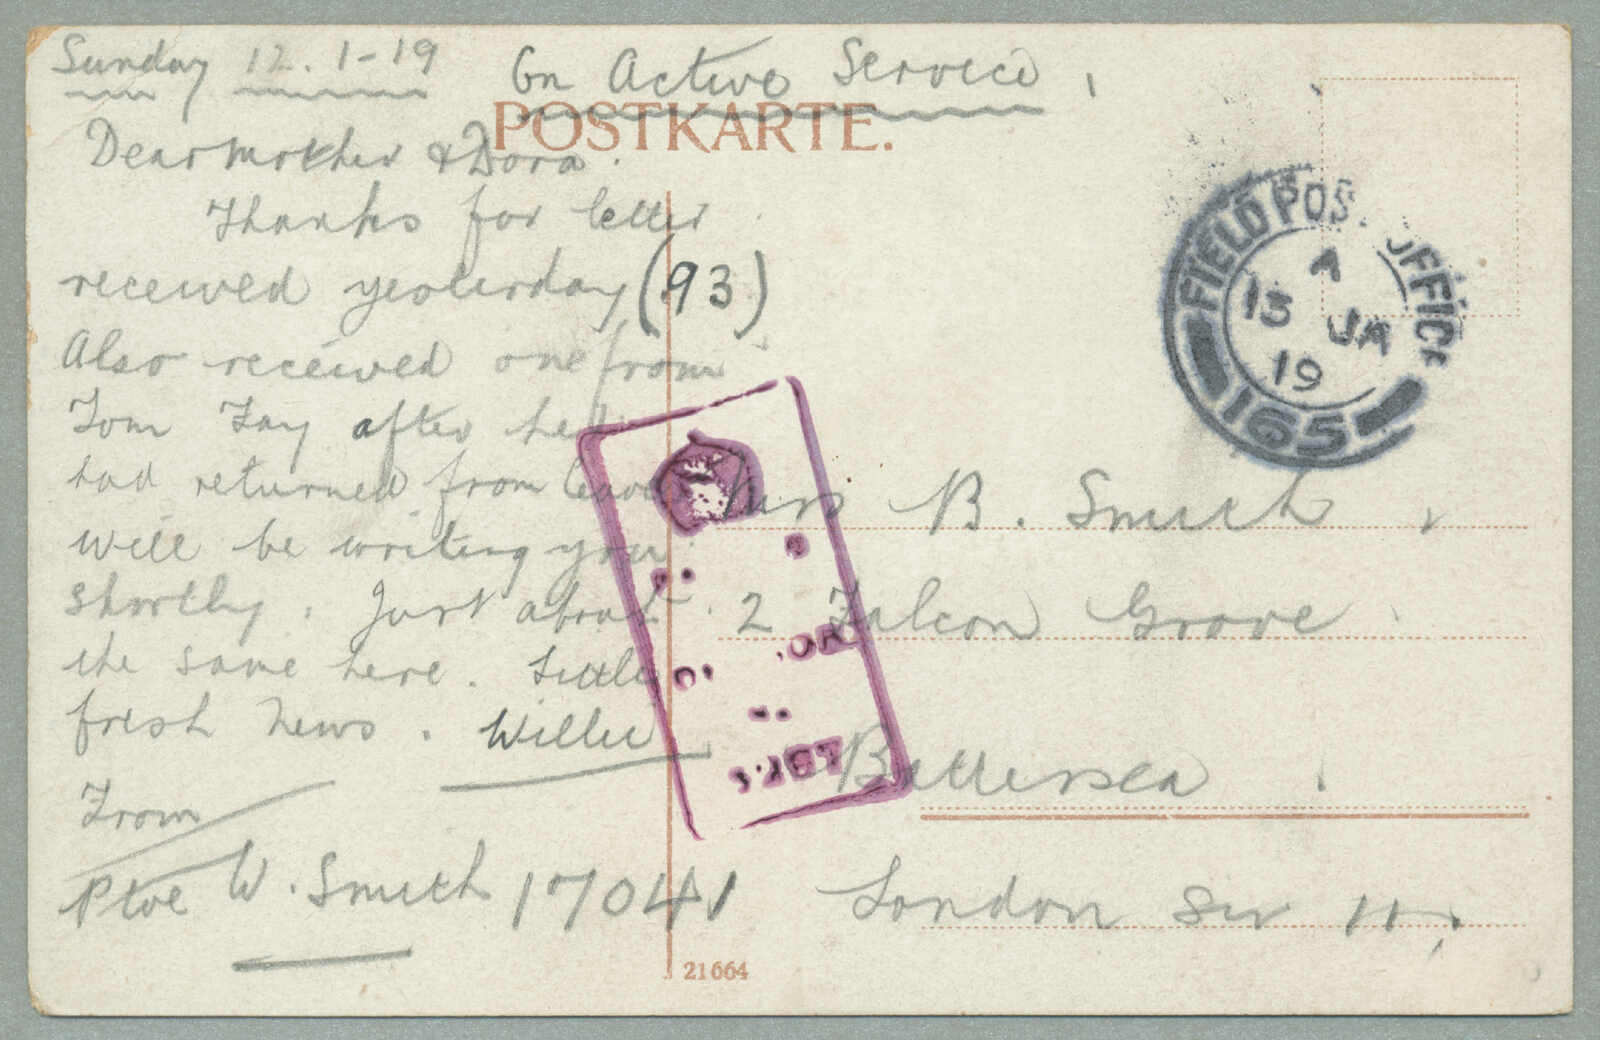 Sunday 12.1-19
On Active Service.
POSTKARTE.
Dear Mother & Dora.
Thanks for letter
received yesterday (93)
Also received one from
Tom Fay after he
had returned from leave
will be writing you
shortly. Just about
the same here. Little
fresh news. Willie
From
Ptve W. Smith 17041
FIELD POST OFFICE
A
13 JA
19
165
Mrs B. Smith,
2 Falcon Grove
Battersea.
London SW 11.
21664